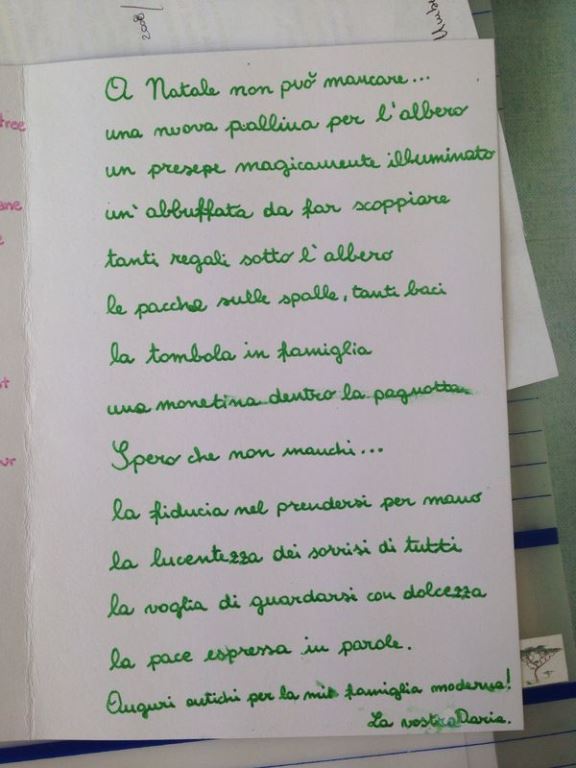 2008
tree
ane
e
A Natale non può mancare...
una nuova pallina per l'albero
un presepe magicamente illuminato
un'abbuffata da far scoppiare
tanti regali sotto l'albero
le pacche sulle spalle, tanti baci
la tombola in famiglia
una monetina dentro la pagnotta
Spero che non manchi...
la fiducia nel prendersi per mano
la lucentezza dei sorrisi di tutti
la voglia di guardarsi con dolcezza
la pace espressa in parole.
Auguri antichi per la mia famiglia moderna!
La vostra Daria.